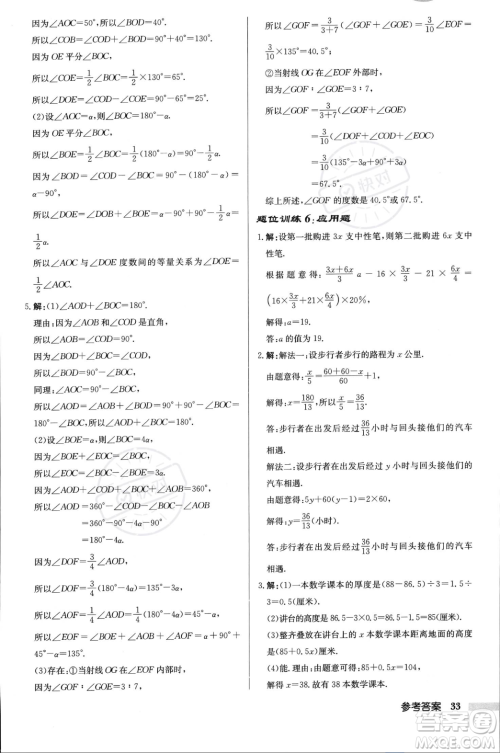 因为∠AOC=50°,
所以∠BOC=180°-∠AOC=130°.
所以∠COF=∠BOC-∠BOF=40°.
因为OE平分∠BOC,
所以∠COE=1/2∠BOC=65°.
所以∠DOE=∠COD-∠COE=25°.
(2)设∠AOC=α,则∠BOC=180°-α.
因为OE平分∠BOC,
所以∠COE=1/2∠BOC=1/2(180°-α).
所以∠DOE=90°-1/2(180°-α)=1/2α.
所以∠AOC与∠DOE度数间的等量关系为∠DOE=
1/2∠AOC.
5.解:(1)∠AOD+∠BOC=180°.
理由:因为∠AOB和∠COD是直角,
所以∠AOB=∠COD=90°.
因为∠BOD+∠BOC=∠COD,
所以∠BOD=90°-∠BOC.
同理:∠AOC=90°-∠BOC.
所以∠AOD=∠AOB+∠BOD=90°+90°-∠BOC=
180°-∠BOC.
所以∠AOD+∠BOC=180°.
(2)设∠BOE=α,则∠BOC=4α.
因为∠BOE+∠EOC=∠BOC,
所以∠EOC=∠BOC-∠BOE=3α.
因为∠AOD+∠COD+∠BOC+∠AOB=360°,
所以∠AOD=360°-∠COD-∠BOC-∠AOB
=360°-90°-4α-90°
=180°-4α.
因为∠DOF=3/4∠AOD,
所以∠DOF=3/4(180°-4α)=135°-3α.
所以∠AOF=1/4∠AOD=1/4(180°-4α)=45°-α.
所以∠EOF=∠BOE+∠AOB+∠AOF
=α+90°+45°-α=135°.
所以∠EOF的度数为135°.
(3)存在:①当射线OG在∠EOF内部时,
所以∠GOF∶∠GOE=3∶7,
所以∠GOF=3/(3+7)(∠GOF+∠GOE)=3/10∠EOF=
3/10×135°=40.5°.
②当射线OG在∠EOF外部时,
因为∠GOF∶∠GOE=3∶7,
所以∠GOF=3/(3+7)(∠GOF+∠GOE)
=67.5°.
综上所述,∠GOF的度数是40.5°或67.5°.
题位训练6:应用题
1.解:设第一批购进3x支中性笔,则第二批购进2x支中性
笔.
(16×3x/a+21×6x/a)×20%.
解得:a=19.
答:a的值为19.
2.解:解法一:设步行者步行的路程为x公里.
由题意得:x/5=(60+60-x)/60.
解得:x=180/13.所以x/5=36/13.
答:步行者在出发后经过36/13小时与回头接他们的汽车
相遇.
解法二:设步行者在出发后经过y小时与回头接他们的
汽车相遇.
由题意得:5y+60(y-1)=2×60.
解得:y=36/13.
答:步行者在出发后经过36/13小时与回头接他们的汽车
相遇.
3.解:(1)一本数学课本的厚度是(88-86.5)÷3=1.5÷
3=0.5(厘米).
(2)讲台的高度是86.5-3×0.5=85(厘米).
(3)整齐叠放在讲台上的x本数学课本距离地面的高度
为(85+0.5x)厘米.
(4)能.理由:由题意得:85+0.5x=104.
解得:x=38.故有38本数学课本.
参考答案 33